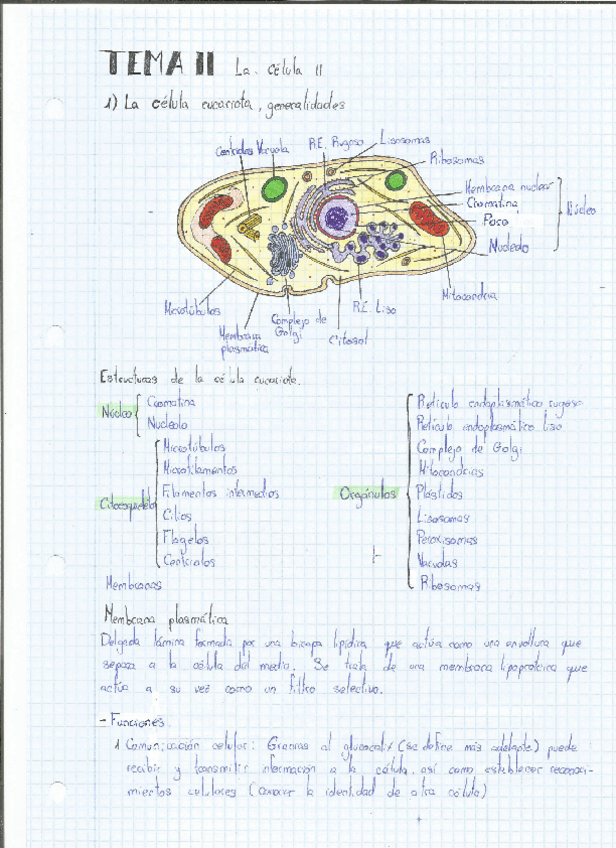 TEMA II La célula II
1) La célula eucariota, generalidades
Centriolos Vacuola R.E. Rugoso Lisosomas
Ribosomas
Membrana nuclear
Cromatina
Poro
Núcleo
Nucleolo
Mitocondria
Microtúbulos
Membrana plasmática
Complejo de Golgi
Citosol
R.E. Liso
Estructuras de la célula eucariota.
Núcleo
Cromatina
Nucleolo
Citoesqueleto
Microtúbulos
Microfilamentos
Filamentos intermedios
Cilios
Flagelos
Centriolos
Membranas
Orgánulos
Retículo endoplasmático rugoso
Retículo endoplasmático liso
Complejo de Golgi
Mitocondrias
Plástidos
Lisosomas
Peroxisomas
Vacuolas
Ribosomas
Membrana plasmática
Delgada lámina formada por una bicapa lipídica que actúa como una envoltura que
separa a la célula del medio. Se trata de una membrana lipoproteica que
actúa a su vez como un filtro selectivo.
- Funciones
1 Comunicación celular: Gracias al glucocalix (se define más adelante) puede
recibir y transmitir información a la célula, así como establecer reconoci-
mientos celulares (conocer la identidad de otra célula)